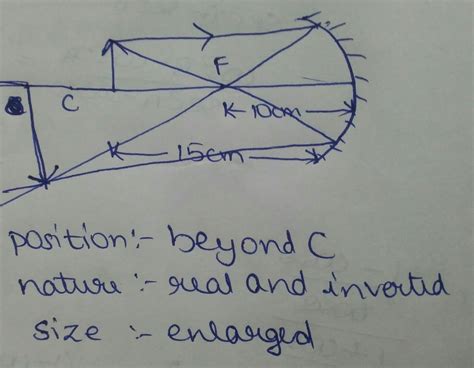 F
C
10cm
15cm
position:- beyond C
nature :- real and inverted
size :- enlarged